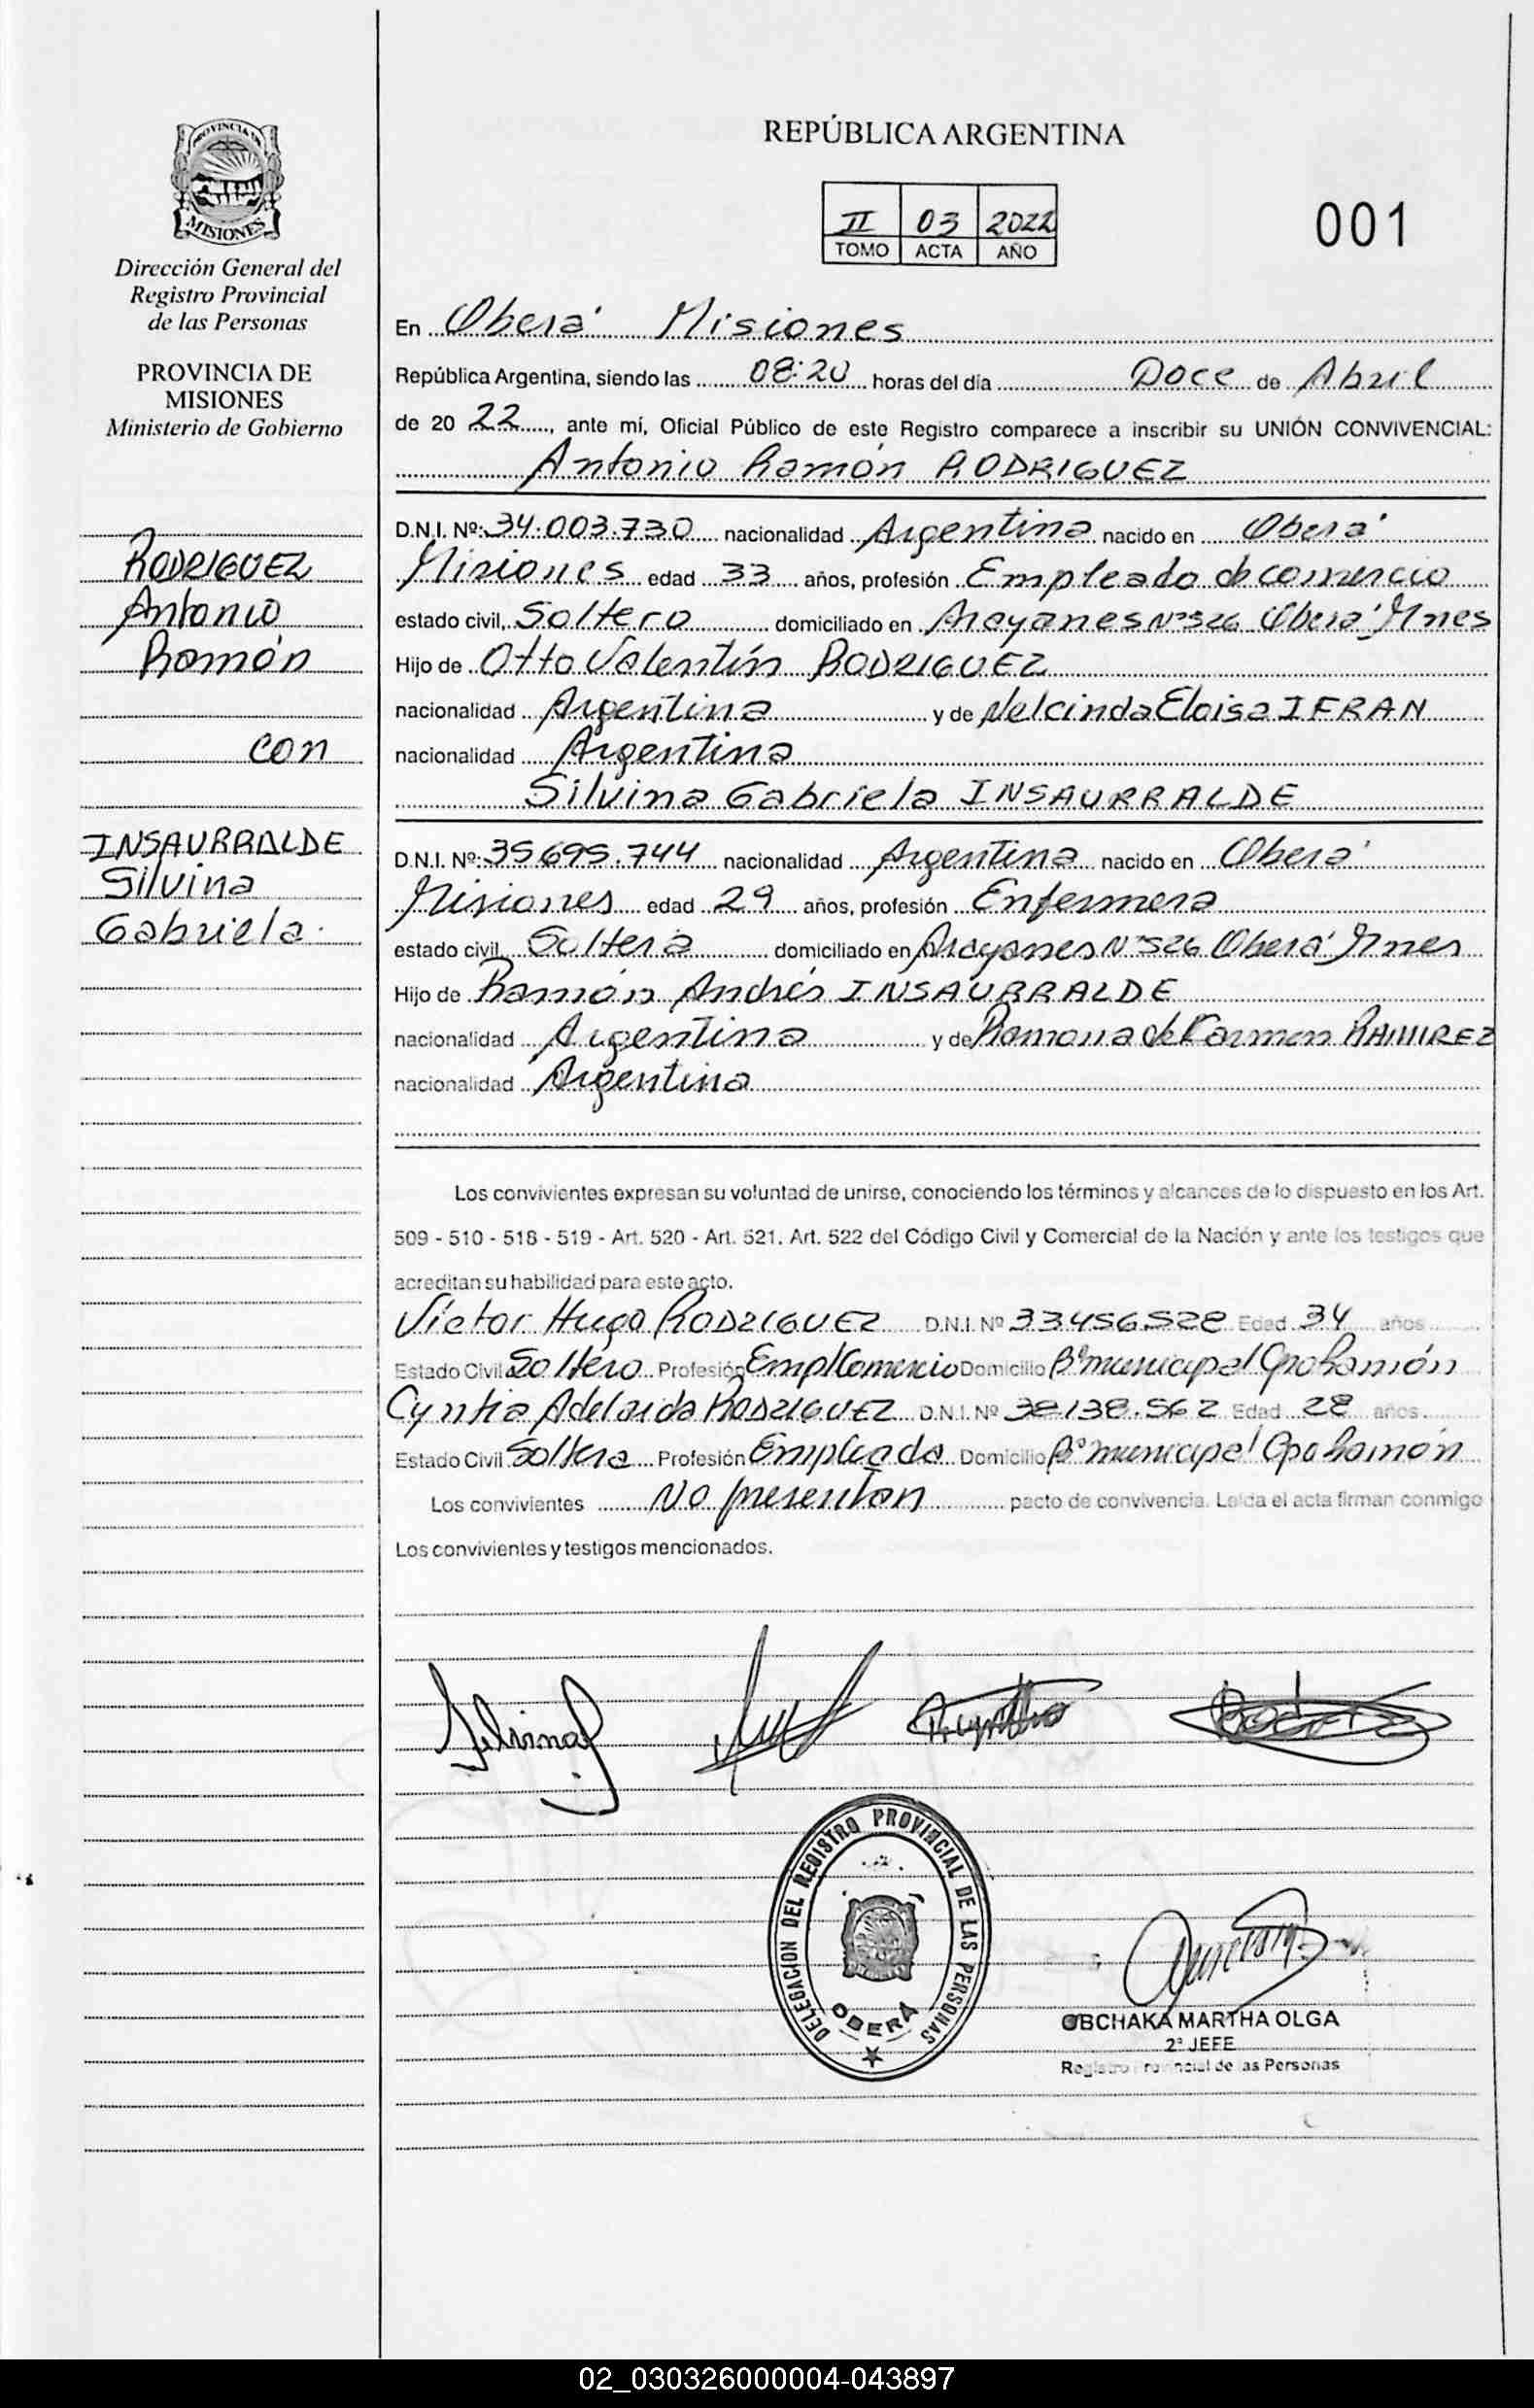 PROVINCIA DE
MISIONES
Dirección General del
Registro Provincial
de las Personas
PROVINCIA DE
MISIONES
Ministerio de Gobierno
RODRIGUEZ
Antonio
Ramón
con
INSAURRALDE
Silvina
Gabriela.
REPÚBLICA ARGENTINA
II 03 2022
TOMO ACTA AÑO
001
En Oberá Misiones
República Argentina, siendo las 08:20 horas del día Doce de Abril
de 20 22, ante mí, Oficial Público de este Registro comparece a inscribir su UNIÓN CONVIVENCIAL:
Antonio Ramón RODRIGUEZ
D.N.I. Nº: 34.003.730 nacionalidad Argentina nacido en Oberá
Misiones edad 33 años, profesión Empleado de comercio
estado civil, Soltero domiciliado en Arayanes Nº526 Oberá Mnes
Hijo de Otto Valentín RODRIGUEZ
nacionalidad Argentina y de Nelcinda Eloisa IFRAN
nacionalidad Argentina
Silvina Gabriela INSAURRALDE
D.N.I. Nº: 35695.744 nacionalidad Argentina nacido en Oberá
Misiones edad 29 años, profesión Enfermera
estado civil, Soltera domiciliado en Arayanes Nº526 Oberá Mnes
Hijo de Ramón Andrés INSAURRALDE
nacionalidad Argentina y de Ramona del Carmen RAMIREZ
nacionalidad Argentina
Los convivientes expresan su voluntad de unirse, conociendo los términos y alcances de lo dispuesto en los Art.
509 - 510 - 518 - 519 - Art. 520 - Art. 521. Art. 522 del Código Civil y Comercial de la Nación y ante los testigos que
acreditan su habilidad para este acto.
Víctor Hugo RODRIGUEZ D.N.I. Nº 33456528 Edad 34 años
Estado Civil Soltero Profesión Empl Comercio Domicilio Bº municipal Gpo Ramón
Cyntia Adelaida RODRIGUEZ D.N.I. Nº 38138.562 Edad 28 años
Estado Civil Soltera Profesión Empleada Domicilio Bº municipal Gpo Ramón
Los convivientes No presentan pacto de convivencia. Leída el acta firman conmigo
Los convivientes y testigos mencionados.
DELEGACION DEL REGISTRO PROVINCIAL DE LAS PERSONAS
OBERÁ
OBCHAKA MARTHA OLGA
2ª JEFE
Registro Provincial de las Personas
02_030326000004-043897